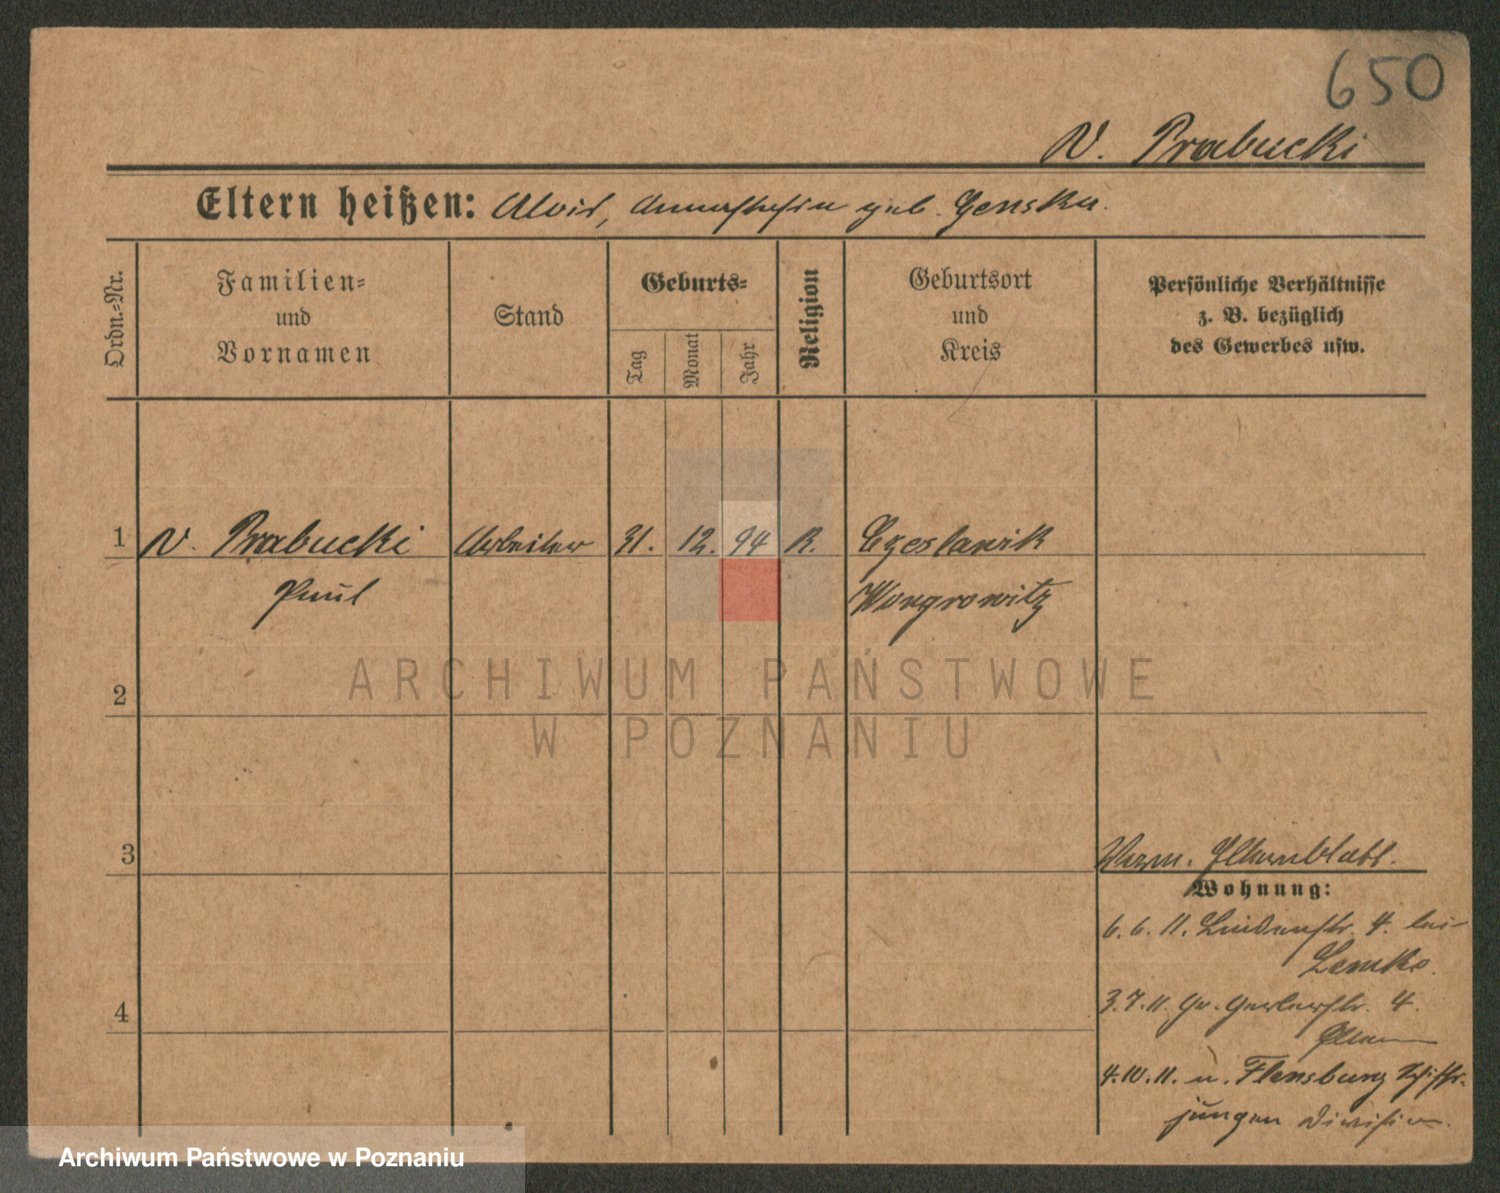 650
v. Prabucki
Eltern heißen: Alois, Annastasia geb. Genska.
Ordn.-Nr.
Familien-
und
Vornamen
Stand
Geburts-
Tag
Monat
Jahr
Religion
Geburtsort
und
Kreis
Persönliche Verhältnisse
z. B. bezüglich
des Gewerbes usw.
1 v. Prabucki Arbeiter 31. 12. 94 R. Czeslawik
Paul Wongrowitz
ARCHIWUM PAŃSTWOWE
W POZNANIU
2
3
Elternblatt.
Wohnung:
6. 6. 11. Lindenstr. 4. bei
Lemko.
4
3. 7. 11. Gr. Gerberstr. 4.
Eltern
4. 10. 11. n. Flensburg Schiffs-
jungen Division.
Archiwum Państwowe w Poznaniu